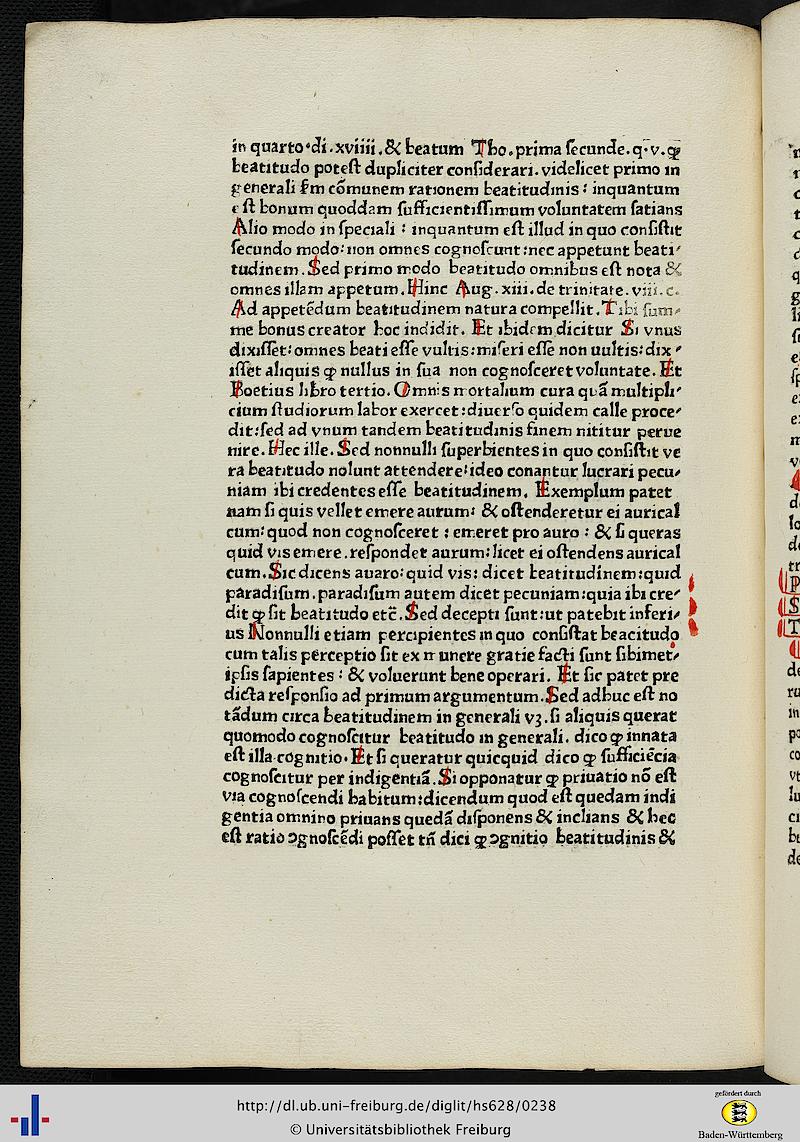 in quarto.di.xviiii.& beatum Tho.prima secunde.q.v.ꝙ
beatitudo potest dupliciter considerari.videlicet primo in
generali scḏm cōmunem rationem beatitudinis: inquantum
est bonum quoddam sufficientissimum voluntatem satians
Alio modo in speciali: inquantum est illud in quo consistit
secundo modo:non omnes cognoscunt:nec appetunt beati-
tudinem.Sed primo modo beatitudo omnibus est nota &
omnes illam appetum.Hinc Aug.xiii.de trinitate.viii.c.
Ad appetēdum beatitudinem natura compellit.Tibi sum-
me bonus creator hoc indidit. Et ibidem dicitur Si vnus
dixisset:omnes beati esse vultis:miseri esse non uultis:dix-
isset aliquis ꝙ nullus in sua non cognosceret voluntate. Et
Boetius libro tertio. Omnis mortalium cura quā multipli-
cium studiorum labor exercet:diuerso quidem calle proce-
dit:sed ad vnum tandem beatitudinis finem nititur perue
nire.Hec ille.Sed nonnulli superbientes in quo consistit ve
ra beatitudo nolunt attendere:ideo conantur lucrari pecu-
niam ibi credentes esse beatitudinem. Exemplum patet
nam si quis vellet emere aurum: & ostenderetur ei aurical
cum:quod non cognosceret: emeret pro auro: & si queras
quid vis emere.respondet aurum:licet ei ostendens aurical
cum.Sic dicens auaro:quid vis: dicet beatitudinem:quid
paradisum.paradisum autem dicet pecuniam:quia ibi cre-
dit ꝙ sit beatitudo etc̄.Sed decepti sunt:ut patebit inferi-
us Nonnulli etiam percipientes in quo consistat beacitudo
cum talis perceptio sit ex munere gratie facti sunt sibimet-
ipsis sapientes: & voluerunt bene operari. Et sic patet pre
dicta responsio ad primum argumentum.Sed adhuc est no
tādum circa beatitudinem in generali vꝫ.si aliquis querat
quomodo cognoscitur beatitudo in generali. dico ꝙ innata
est illa cognitio.Et si queratur quicquid dico ꝙ sufficiēcia
cognoscitur per indigentiā.Si opponatur ꝙ priuatio nō est
via cognoscendi habitum:dicendum quod est quedam indi
gentia omnino priuans quedā disponens & inclians & hec
est ratio ↄgnoscēdi posset tn̄ dici ꝙ ↄgnitio beatitudinis &
http://dl.ub.uni-freiburg.de/diglit/hs628/0238
© Universitätsbibliothek Freiburg
gefördert durch
Baden-Württemberg